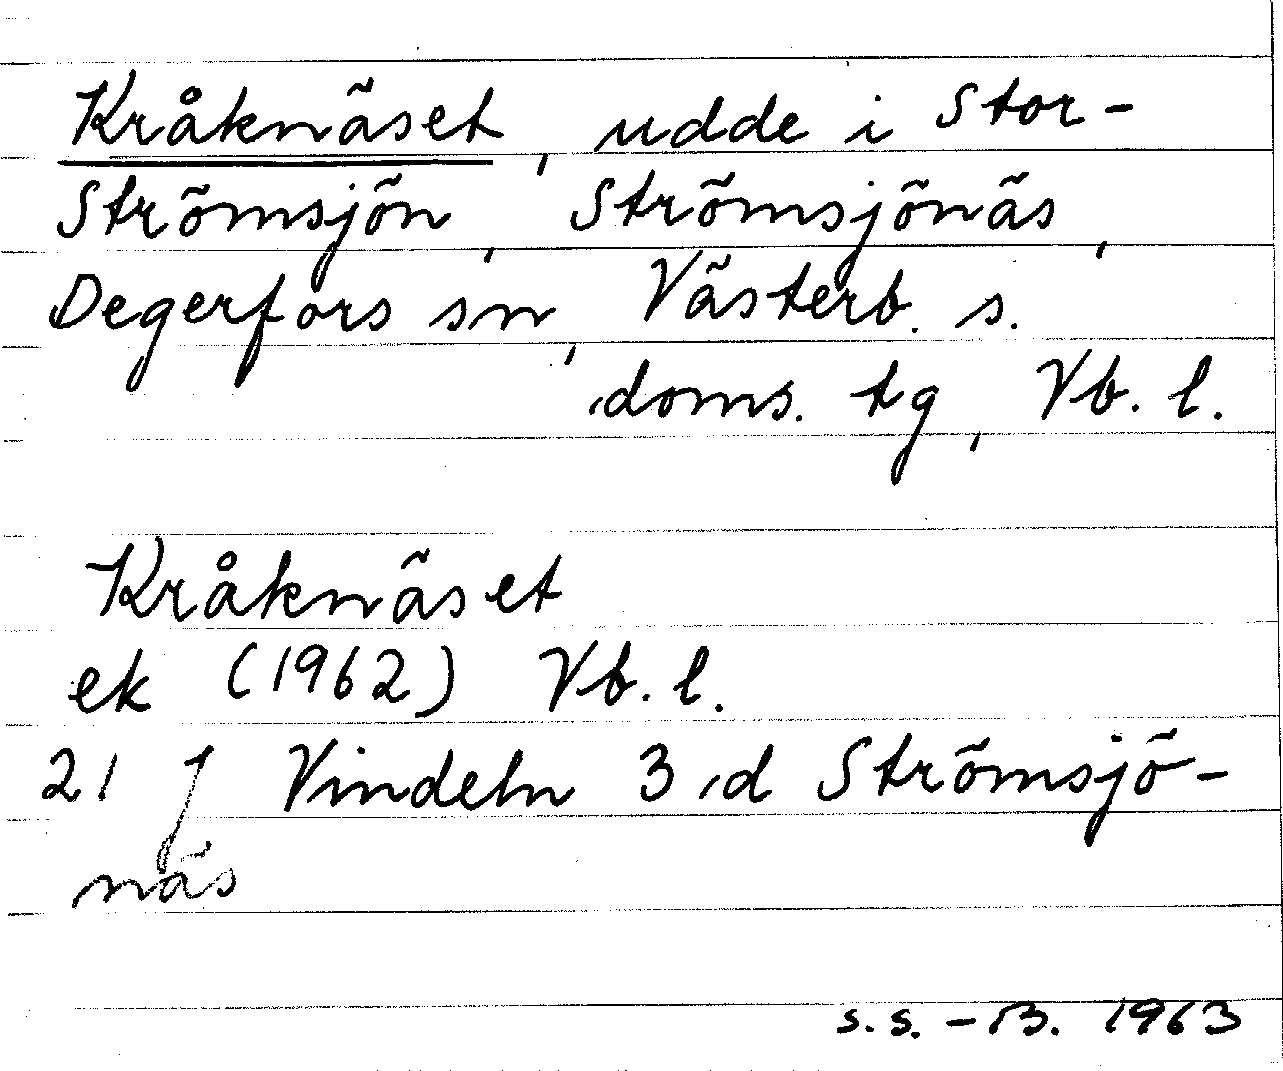 Kråknäset, udde i Stor-
Strömsjön, Strömsjönäs,
Degerfors sn, Västerb. s.
doms. tg, Vb. l.
Kråknäset
ek (1962) Vb. l.
21 J Vindeln 3 d Strömsjö-
näs
s.s. - B. 1963